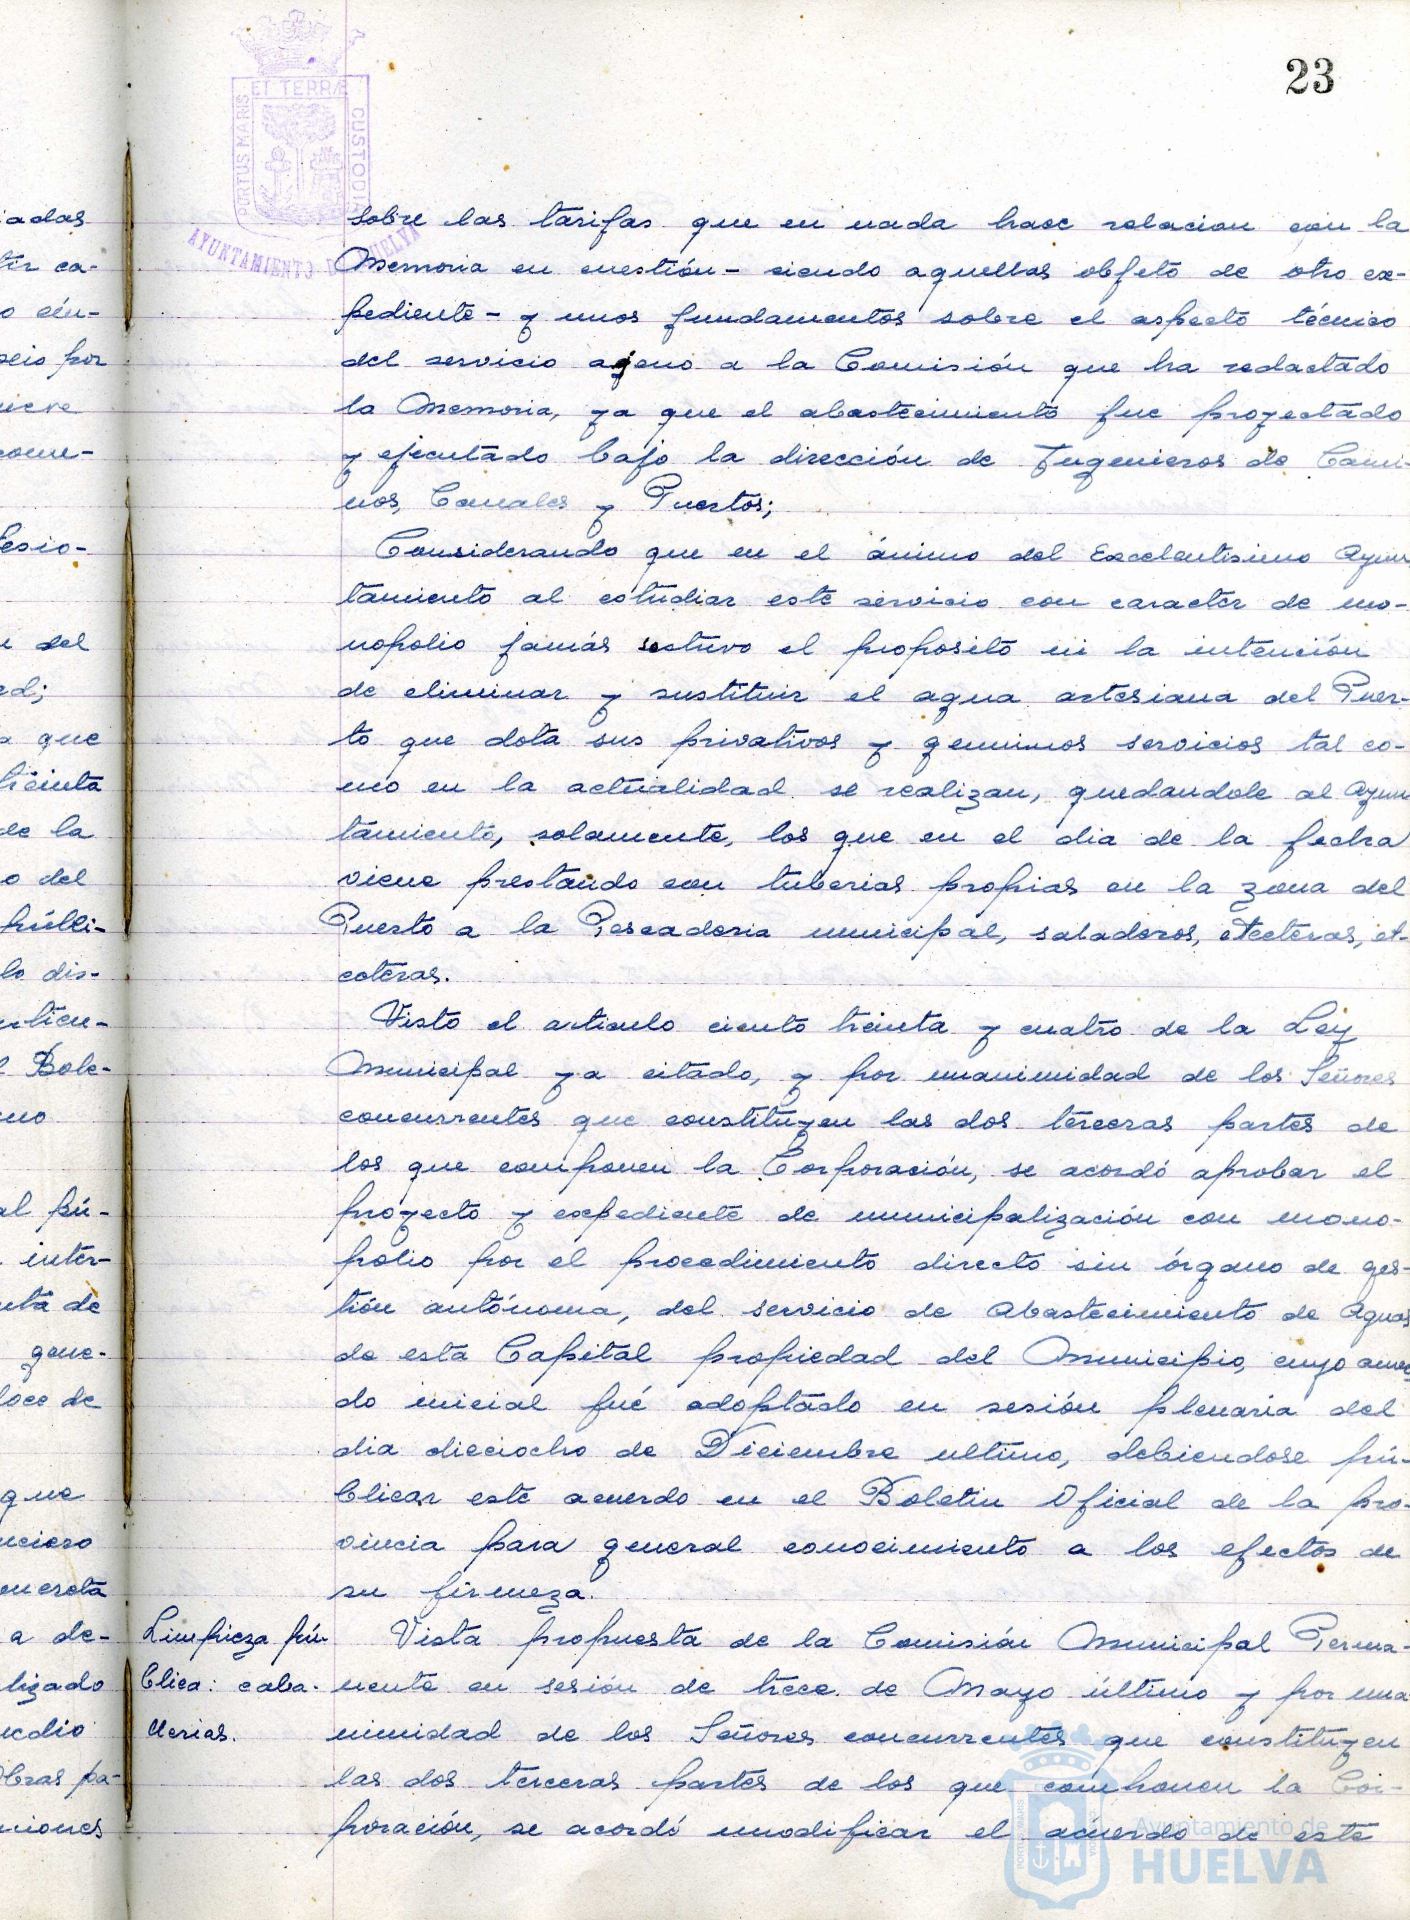 23
PORTUS MARIS
ET TERRÆ
CUSTODIA
AYUNTAMIENTO DE HUELVA
sobre las tarifas que en nada hace relacion con la
Memoria en cuestión - siendo aquellas objeto de otro ex-
pediente - y unos fundamentos sobre el aspecto técnico
del servicio ageno a la Comisión que ha redactado
la Memoria, ya que el abastecimiento fue proyectado
y ejecutado bajo la dirección de Ingenieros de Cami-
nos, Canales y Puertos;
Considerando que en el ánimo del Excelentisimo Ayun
tamiento al estudiar este servicio con caracter de mo-
nopolio jamás estuvo el proposito ni la intención
de eliminar y sustituir el agua artesiana del Puer-
to que dota sus privativos y genuinos servicios tal co-
mo en la actualidad se realizan, quedandole al Ayun
tamiento, solamente, los que en el dia de la fecha
viene prestando con tuberias propias en la zona del
Puerto a la Pescaderia municipal, saladeros, etecteras, et-
ceteras.
Visto el articulo ciento treinta y cuatro de la Ley
Municipal ya citado, y por unanimidad de los Señores
concurrentes que constituyen las dos terceras partes de
los que componen la Corporación, se acordó aprobar el
proyecto y expediente de municipalización con mono-
polio por el procedimiento directo sin órgano de ges-
tión autónoma, del servicio de Abastecimiento de Aguas
de esta Capital propiedad del Municipio, cuyo acuer
do inicial fué adoptado en sesión plenaria del
dia dieciocho de Diciembre ultimo, debiendose pú-
blicar este acuerdo en el Boletin Oficial de la pro-
vincia para general conocimiento a los efectos de
su firmeza.
Limpieza pú-
blica: caba-
llerias.
Vista propuesta de la Comisión Municipal Perma-
nente en sesión de trece de Mayo último y por una
nimidad de los Señores concurrentes que constituyen
las dos terceras partes de los que componen la Cor-
poración, se acordó modificar el acuerdo de este
iadas
tir ca-
o cin-
por
nueve
come-
del
ed;
a que
treinta
de la
o del
públi-
lo dis-
l Bole-
mo
al pú-
inter-
de
gene-
doce de
que
a de-
lizado
medio
Obras pa-
ciones
Ayuntamiento de
HUELVA